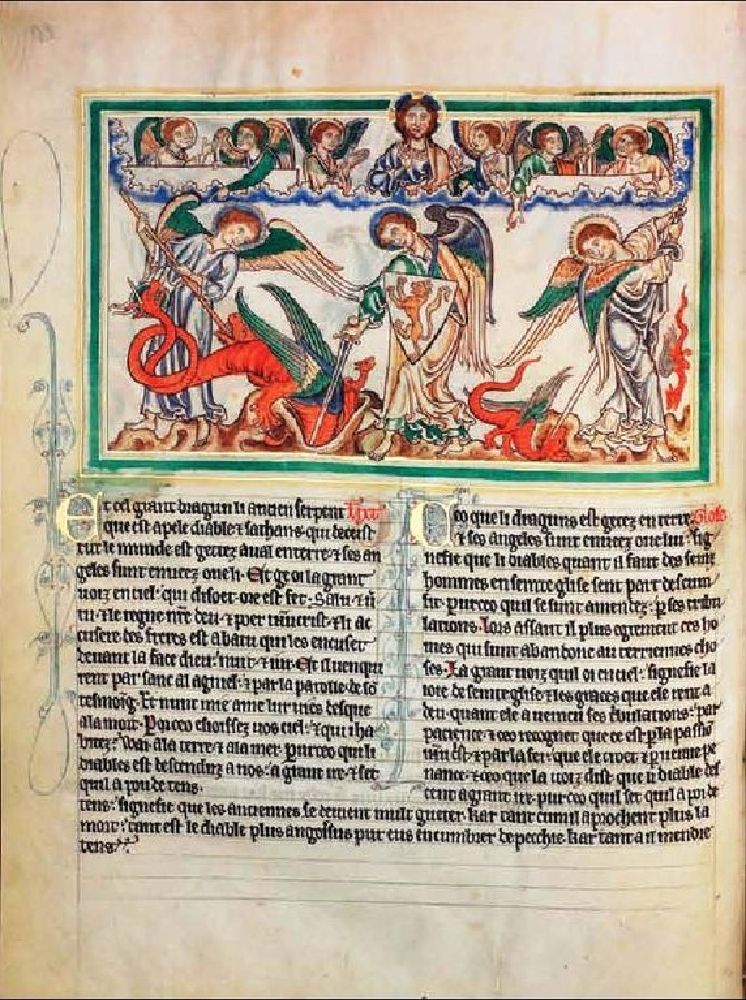 Et cel grant dragun li ancien serpent
que est apele diable ⁊ sathans. qui deceit
tut le munde est gettez aual en terre. ⁊ ses an
geles sunt enueez oue li. Est ge oi la grant
uoiz en ciel. qui disoet. ore est fet. Salu ⁊
tu. ⁊ le regne nre deu. ⁊ poer crist. ⁊ li ac
cusere des freres est abatu qui les encuset
deuant la face dieu. nuit ⁊ iur. Est il uenqui
rent par sanc al agnel. ⁊ par la parole de so
tesmoig. Et nunt mie ame lur uies desque
a la mort. Purceo uos ciel. ⁊ qui iha
bitez. Wai a la terre. ⁊ a la mer. purceo qui li
diables est descenduz a nos. a grant ire. ⁊ set
quil a pou de tens.
Ceo que li draguns est gettez en terre. Glose
⁊ ses angeles sunt enueez oue lui. sig
nefie que li diables quant il faut des seinz
hommes en seinte glise sent part
purceo quil se sunt amendez. p ses tribu
lations. lors assaut il plus egrement ces ho
mes qui sunt abandone as terriennes cho
ses. La grant uoiz qui oi en ciel. signefie la
ioie de seinte glise ⁊ les graces que ele rent a
deu. quant ele a uencu ses tribulations. par
patience. ⁊ ceo recognet que ce est p la
⁊ par la fei. que ele croit. ⁊ p uerrue pe
nance. ⁊ ceo que la uoiz dist que li diable des
cent a grant ire. purceo quil set quil a poi de
tens. signefie que les anciennes se deiuent mult gueter. kar tant cum il aprochent plus la
mort. tant est le diable plus angossus pur eus encumbrer de pecchie. kar tant a il mendre
tens.